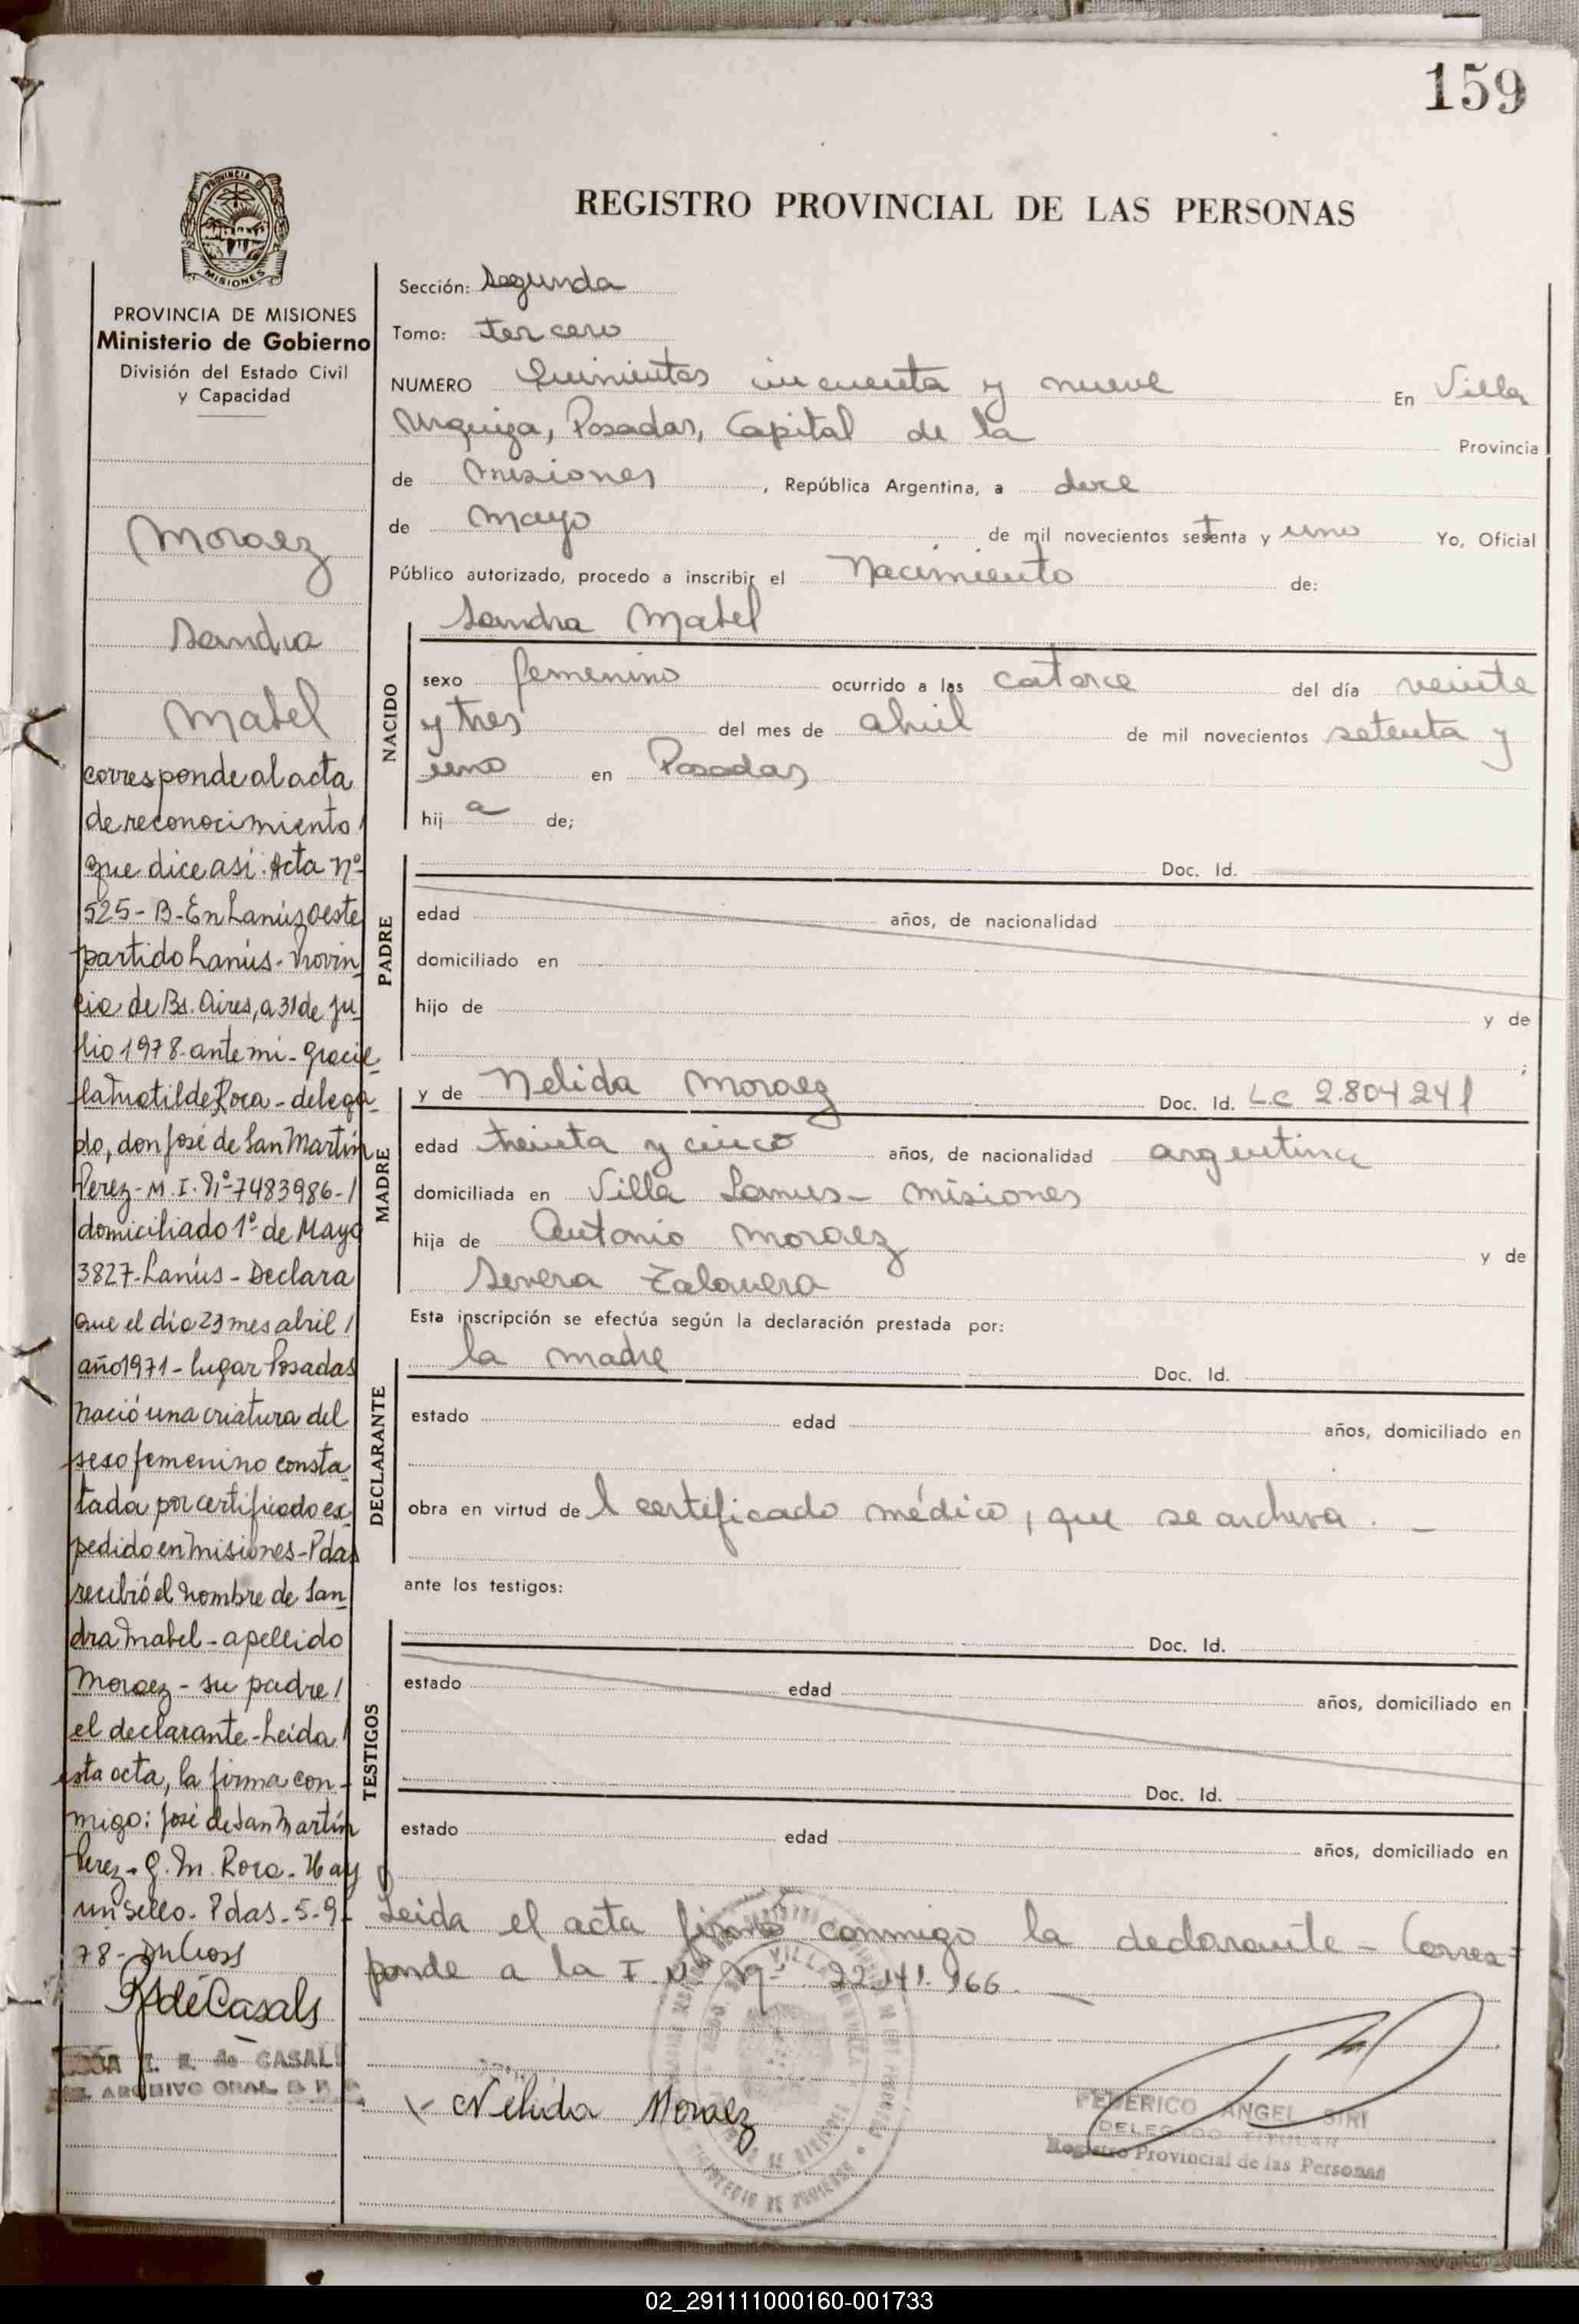 159
PROVINCIA DE
MISIONES
PROVINCIA DE MISIONES
Ministerio de Gobierno
División del Estado Civil
y Capacidad
Moraez
Sandra
Mabel
corresponde al acta
de reconocimiento /
que dice asi: Acta Nº
525-B-En Lanús Oeste
partido Lanús-Provin
cia de Bs. Aires, a 31 de Ju
lio 1978-ante mi-Gracie
la Matilde Roca-delega
do, don José de San Martín
Perez-M.I. Nº 7483986-/
domiciliado 1º de Mayo
3827-Lanús-Declara
que el día 23 mes abril /
año 1971-lugar Posadas
nació una criatura del
sexo femenino consta
tada por certificado ex
pedido en Misiones-Pdas
recibió el nombre de San
dra Mabel-apellido
Moraez-su padre /
el declarante-Leída /
esta acta, la firma con-
migo: José de San Martín
Perez-G.M. Roca-Hay
un sello-Pdas-5-9-
78-
de Casals
de CASALS
ARCHIVO GRAL
REGISTRO PROVINCIAL DE LAS PERSONAS
Sección: Segunda
Tomo: tercero
NUMERO Quinientos cincuenta y nueve En Villa
Urquiza, Posadas, Capital de la Provincia
de Misiones, República Argentina, a doce
de Mayo de mil novecientos setenta y uno Yo, Oficial
Público autorizado, procedo a inscribir el Nacimiento de:
Sandra Mabel
NACIDO
sexo femenino ocurrido a las catorce del día veinte
y tres del mes de abril de mil novecientos setenta y
uno en Posadas
hija de;
PADRE
Doc. Id.
edad años, de nacionalidad
domiciliado en
hijo de y de
;
MADRE
y de Nelida Moraez Doc. Id. L.C 2.804241
edad treinta y cinco años, de nacionalidad argentina
domiciliada en Villa Lanus- Misiones
hija de Antonio Moraez y de
Severa Zalavera
Esta inscripción se efectúa según la declaración prestada por:
DECLARANTE
la madre Doc. Id.
estado edad años, domiciliado en
obra en virtud del certificado médico, que se archiva. -
ante los testigos:
TESTIGOS
Doc. Id.
estado edad años, domiciliado en
Doc. Id.
estado edad años, domiciliado en
Leida el acta firmó conmigo la declarante - Corres=
ponde a la I.M. Nº 22.141.166. -
Nelida Moraez
FEDERICO ANGEL SIRI
DELEGADO TITULAR
Registro Provincial de las Personas
02_291111000160-001733